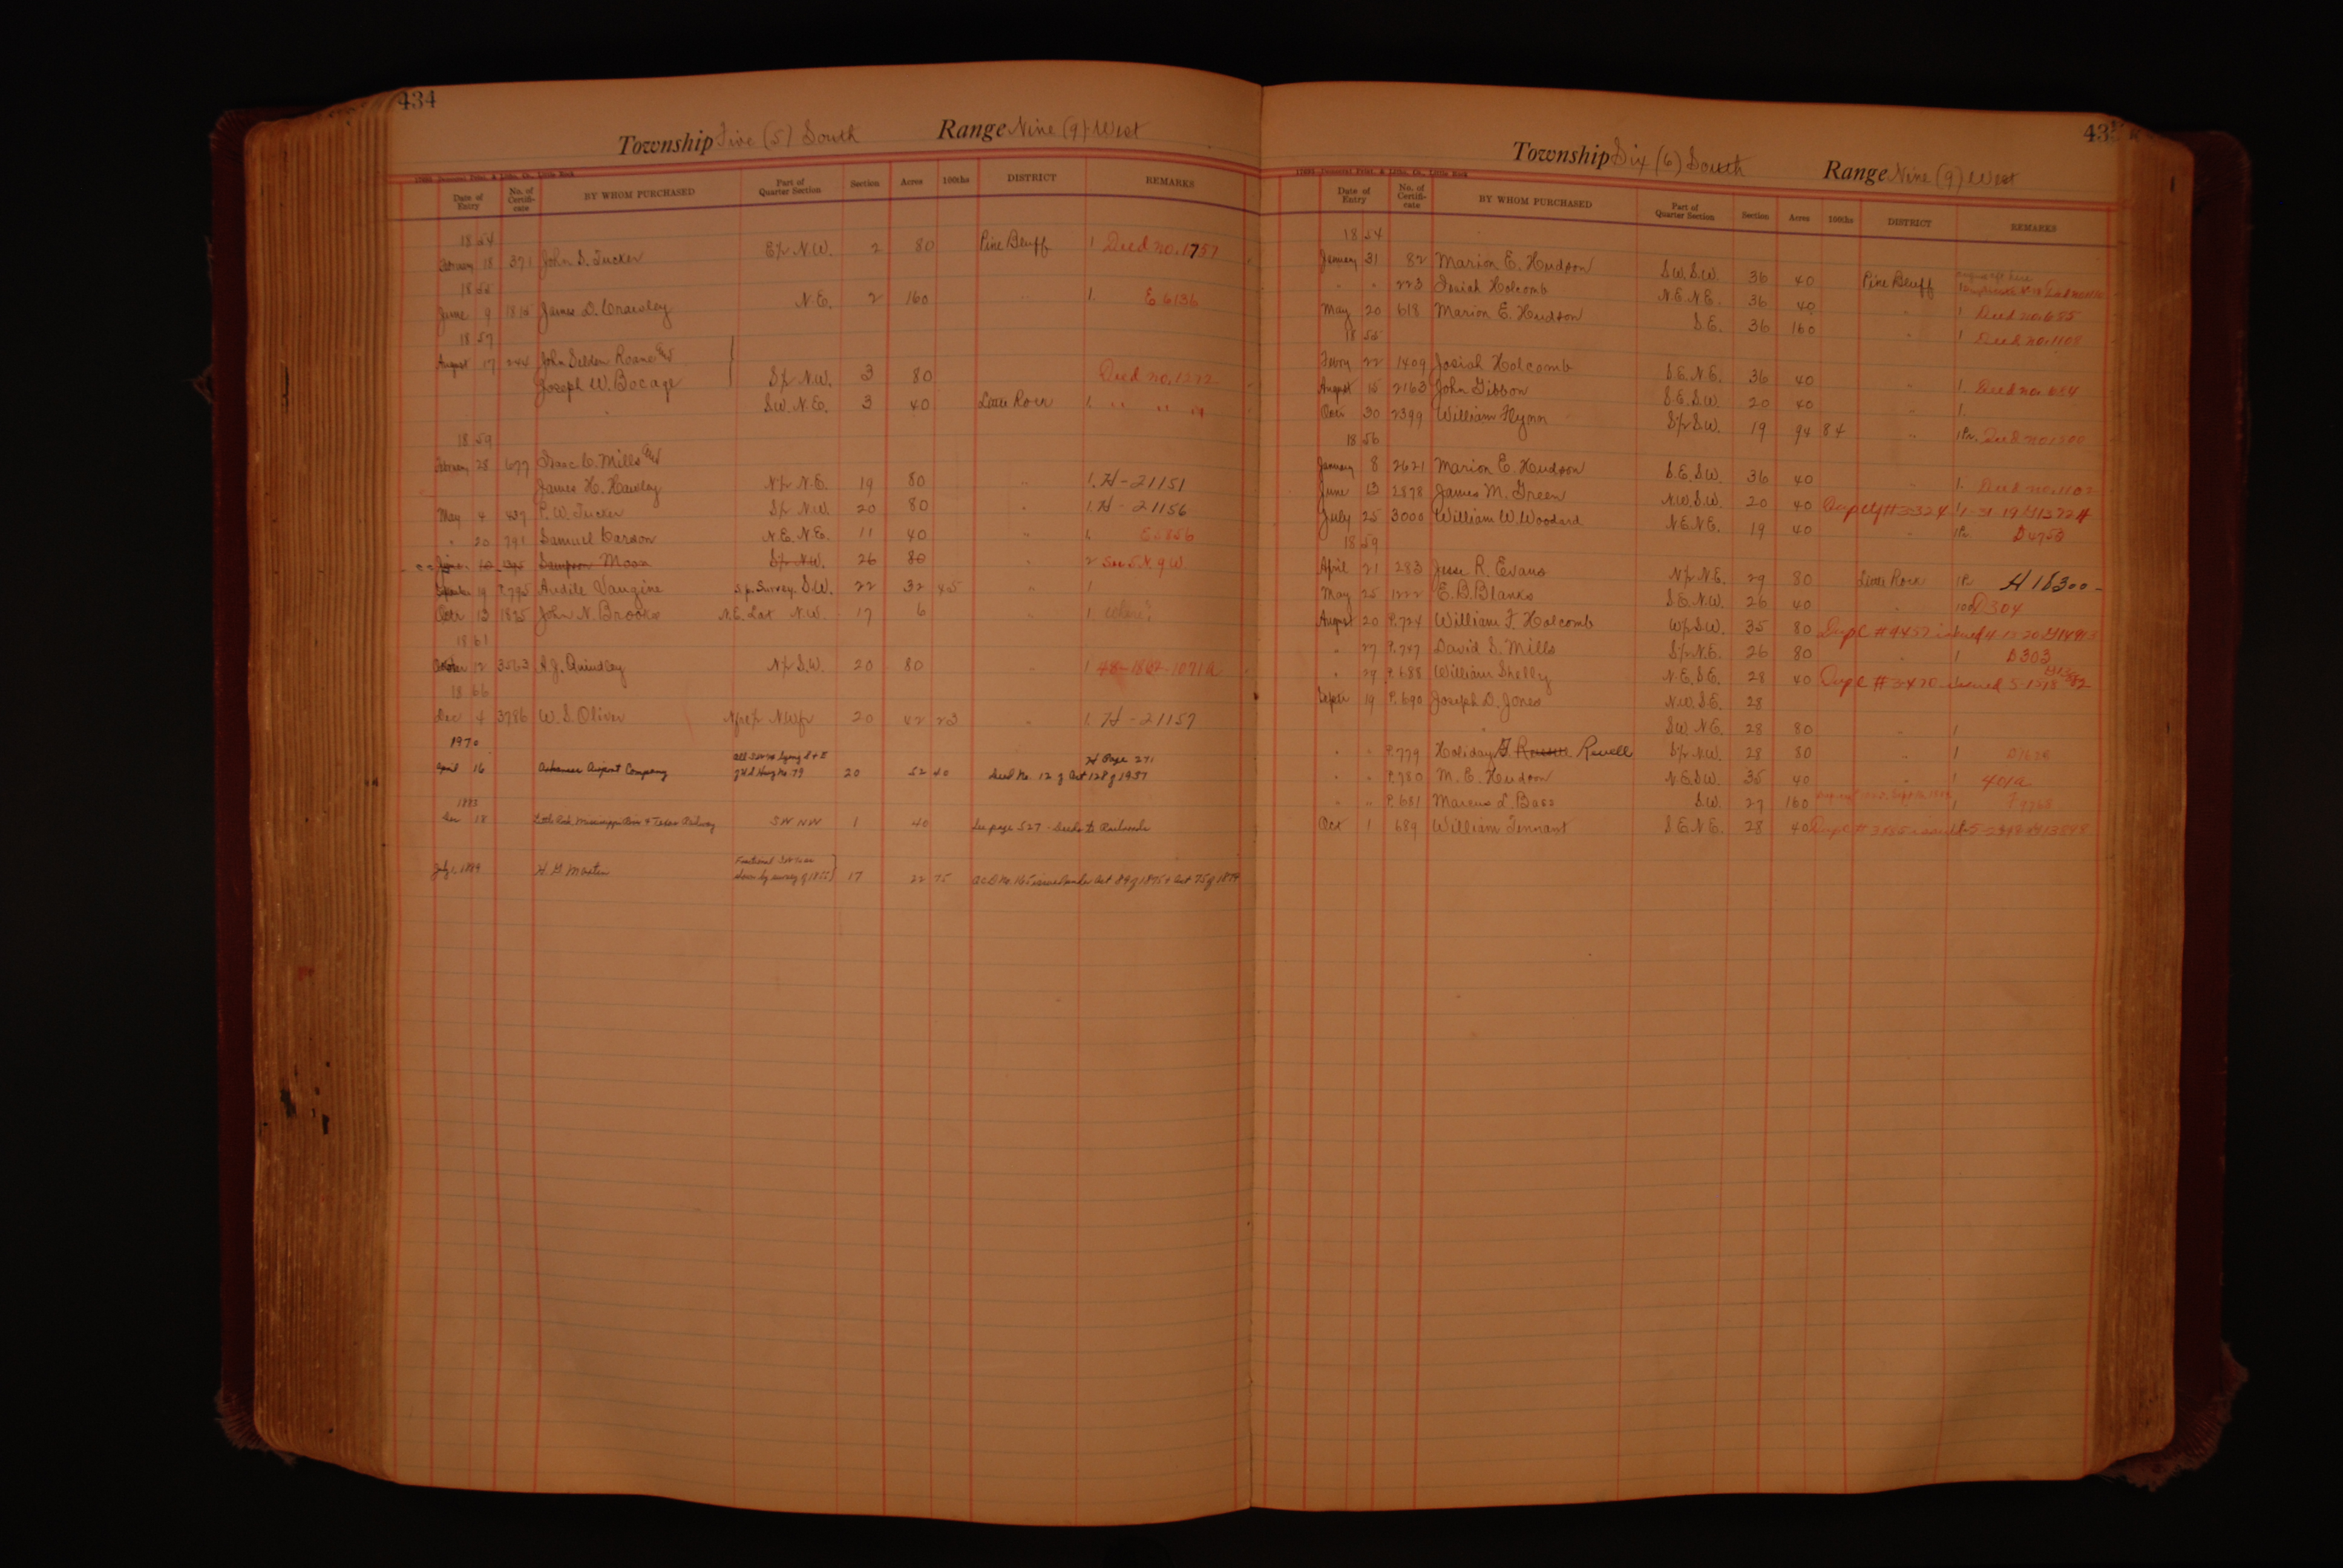 434
Township Five (5) South Range Nine (9) West
Date of Entry No. of Certifi-cate BY WHOM PURCHASED Part of Quarter Section Section Acres 100ths DISTRICT REMARKS
1854
February 18 371 John S. Tucker E½ N.W. 2 80 Pine Bluff 1 Deed no. 1757
1855
June 9 1815 James D. Crawley N.E. 2 160 " 1. E 6136
1857
August 17 244 John Selden Roane and
Joseph W. Bocage S½ N.W. 3 80 Deed no. 1272
" S.W. N.E. 3 40 Little Rock 1. " " "
1859
February 28 677 Isaac C. Mills and
James H. Hawley N½ N.E. 19 80 " 1. H-21151
May 4 837 P. W. Tucker S½ N.W. 20 80 " 1. H-21156
" 20 791 Samuel Carson N.E. N.E. 11 40 " 1.
June 10 Sampson Moon S½ N.W. 26 80 " 2 See 5 N. 9 W
September 19 P.795 Audile Vaugine Survey. S.W. 22 32 45 " 1
Octr 13 1825 John N. Brooks N.E. Lot N.W. 17 6 " 1.
1861
October 12 3563 A. J. Quindley N½ S.W. 20 80 1
1866
Dec 4 3786 W. S. Oliver 20 42 23 " 1. H-21157
1970 H Page 271
April 16 Arkansas Airport Company of U.S. Hwy No 79 20 52 40 Deed No. 12 of Act 128 of 1957
1883
18 Little Rock Mississippi River & Texas Railway SW NW 1 40 See page 527 - Deeds to Railroads
July 1, 1899 H. G. Martin Fractional
shown by survey of 1855 17 22 75
435
Township Six (6) South Range Nine (9) West
Date of Entry No. of Certifi-cate BY WHOM PURCHASED Part of Quarter Section Section Acres 100ths DISTRICT REMARKS
1854
January 31 82 Marion E. Hudson S.W. S.W. 36 40 Pine Bluff
" " 223 Josiah Holcomb N.E. N.E. 36 40 " 1 Deed no. 655
May 20 618 Marion E. Hudson S.E. 36 160 " 1 Deed no. 1108
1855
Febry 22 1409 Josiah Holcomb S.E. N.E. 36 40 " 1. Deed no. 654
August 15 2163 John Gibson S.E. S.W. 20 40 " 1.
Octr 30 2399 William Flynn S½ S.W. 19 94 84 " 1Pr.
1856
January 8 2621 Marion E. Hudson S.E. S.W. 36 40 " 1. Deed no. 1107
June 13 2878 James M. Green N.W. S.W. 20 40
July 25 3000 William W. Woodard N.E. N.E. 19 40 " 1Pr.
1859
April 21 283 Jesse R. Evans N½ N.E. 29 80 Little Rock 1Pr. H 18300
May 25 1222 E. B. Blanks S.E. N.W. 26 40 " D304
August 20 P.724 William F. Holcomb W½ S.W. 35 80 Dupl #4452
" 27 P.787 David S. Mills S½ N.E. 26 80 " 1 D303
" 29 P.688 William Shelly N.E. S.E. 28 40 Dupl #3470 issued 5-15-18
Septr 19 P.690 Joseph D. Jones N.W. S.E. 28
" S.W. N.E. 28 80 " 1
" " P.779 Holiday G Revell S½ N.W. 28 80 " 1
" " P.780 M. E. Hudson N.E. S.W. 35 40 " 1 401a
" " P.681 Marcus L. Bass S.W. 27 160 1
Oct 1 689 William Tennant S.E. N.E. 28 40